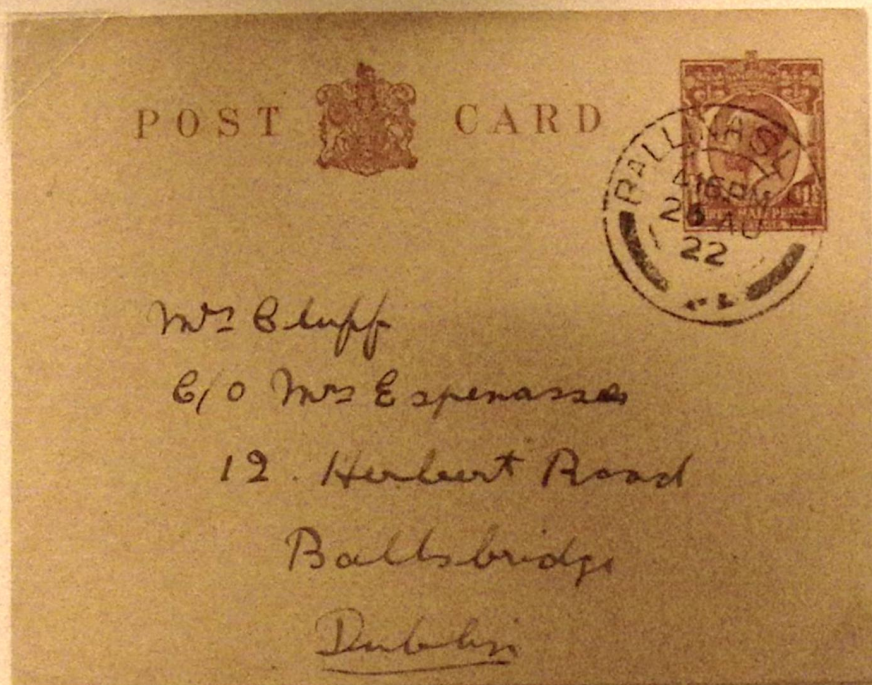 POST CARD
4 15 PM
AU
22
THREE HALF PENCE
Mrs Bluff
C/O Mrs Espenasse
12. Herbert Road
Ballsbridge
Dublin